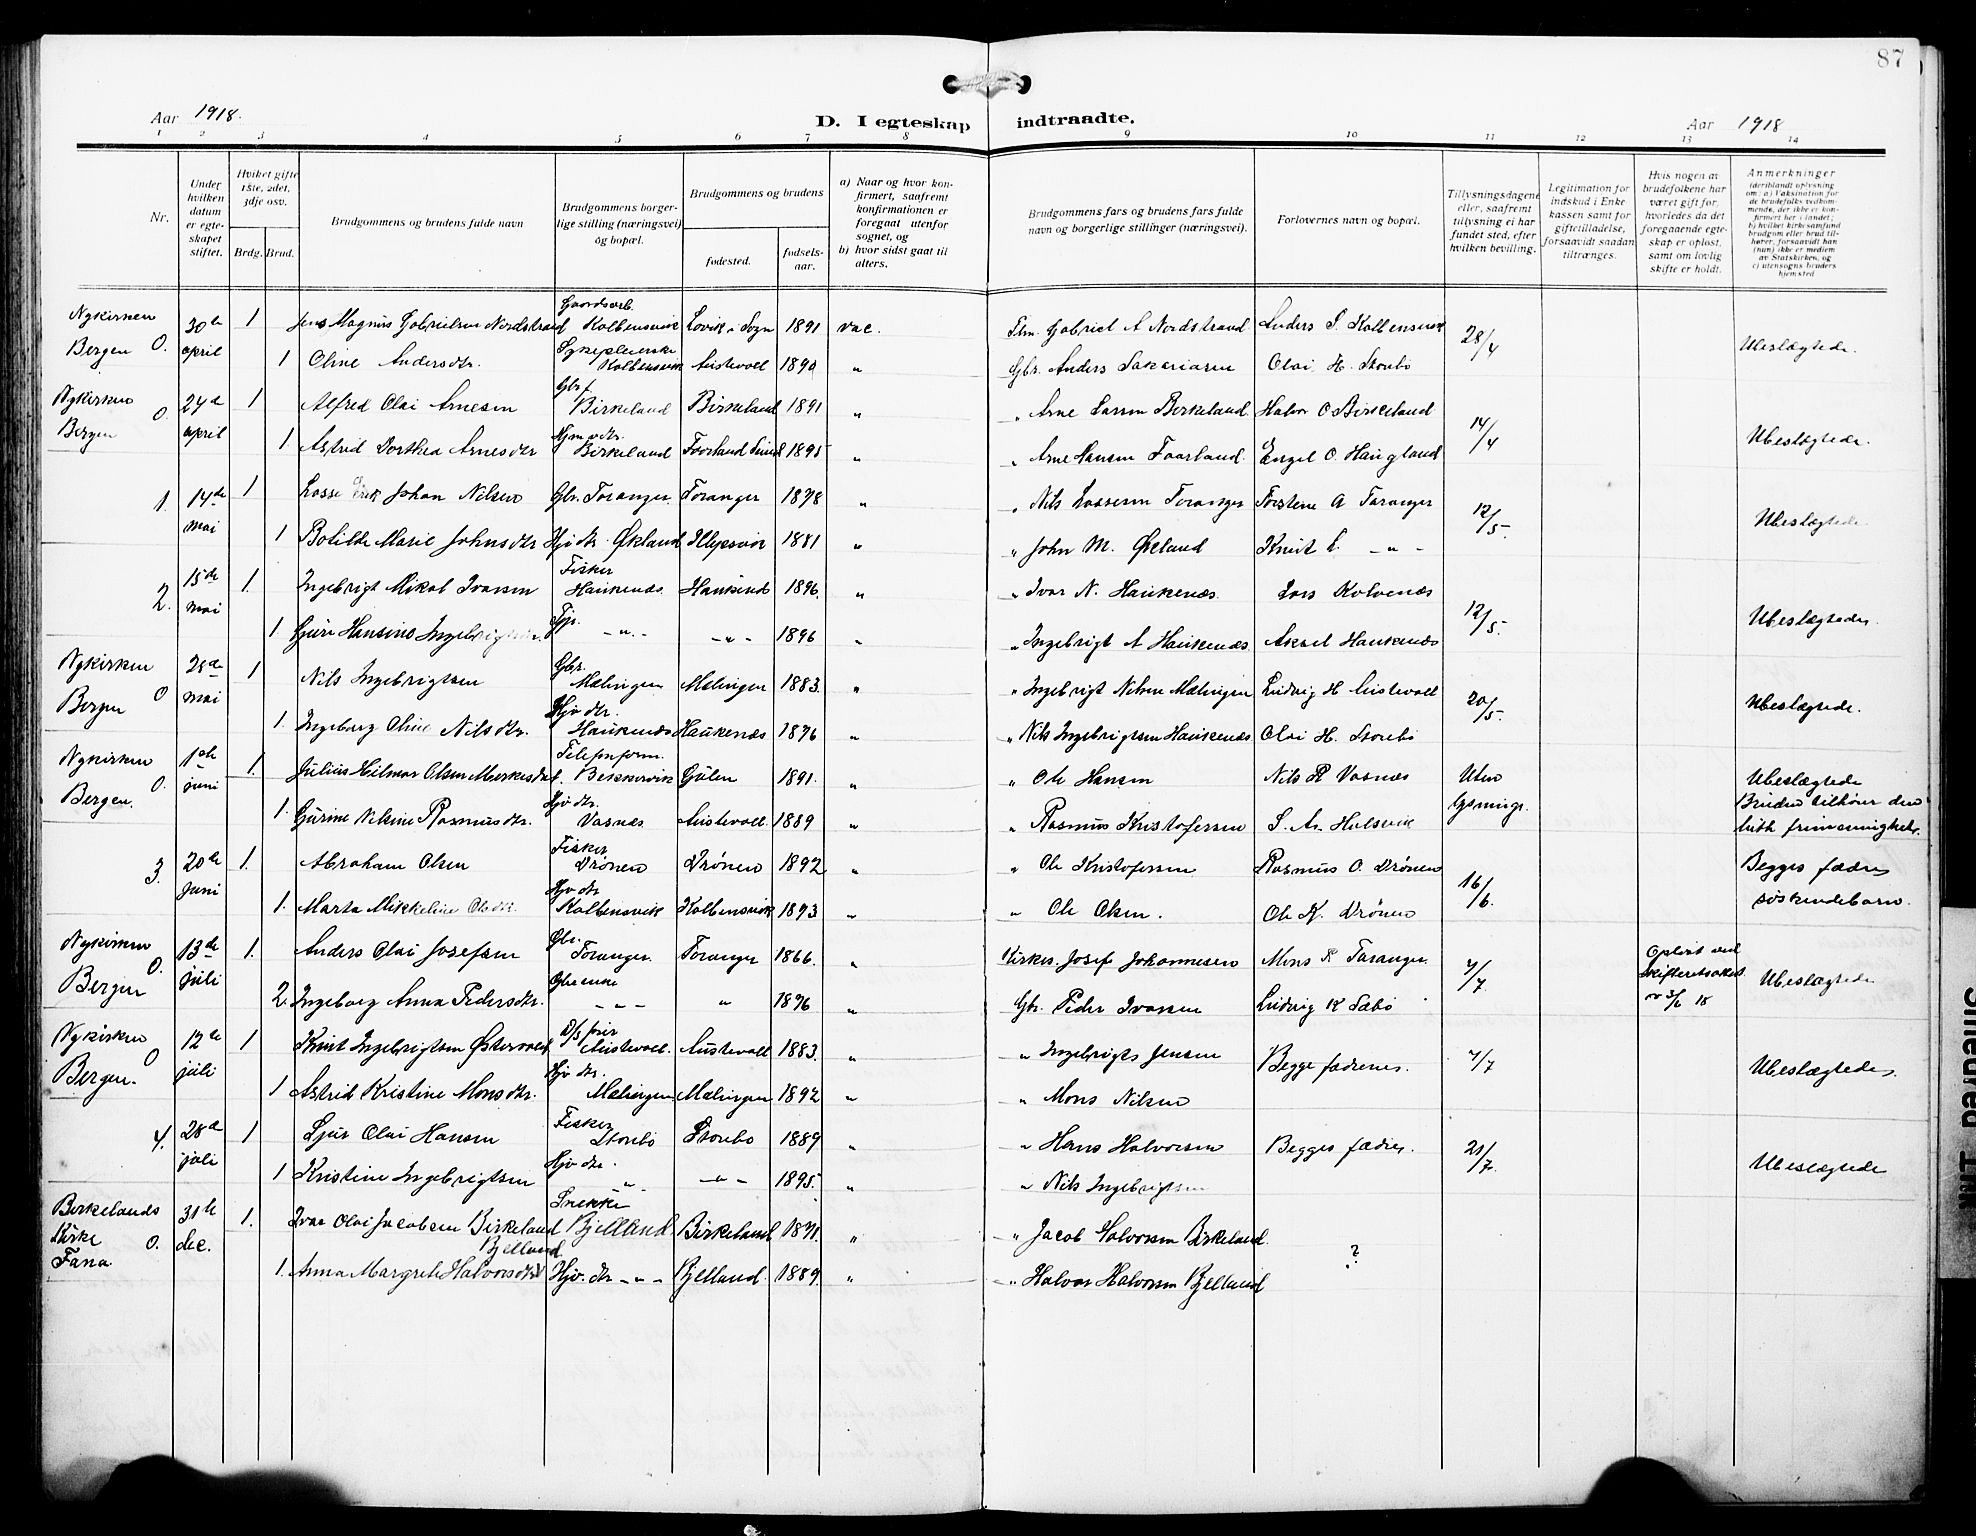 87
Aar 1918.
D. I egteskap indtraadte.
Aar 1918
1 2 3 4 5 6 7 8 9 10 11 12 13 14
Nr.
Under hvilken datum er egteskapet stiftet.
Hvilket gifte 1ste, 2det, 3dje osv.
Brdg. Brud.
Brudgommens og brudens fulde navn
Brudgommens borgerlige stilling (næringsvei) og bopæl.
Brudgommens og brudens
fødested.
fødselsaar.
a) Naar og hvor konfirmert, saafremt konfirmationen er foregaat utenfor sognet, og
b) hvor sidst gaat til alters.
Brudgommens fars og brudens fars fulde navn og borgerlige stillinger (næringsvei).
Forlovernes navn og bopæl.
Tillysningsdagene eller, saafremt tillysning ei har fundet sted, efter hvilken bevilling.
Legitimation for indskud i Enkekassen samt for giftetilladelse, forsaavidt saadan tiltrænges.
Hvis nogen av brudefolkene har været gift før, hvorledes da det foregaaende egteskap er opløst, samt om lovlig skifte er holdt.
Anmerkninger (deriblandt oplysning om: a) Vaksination for de brudefolks vedkommende, der ikke er konfirmert her i landet; b) hvilket kirkesamfund brudgom eller brud tilhører, forsaavidt han (hun) ikke er medlem av Statskirken, og c) utensogns bruders hjemsted
Nykirken Bergen O. 30te april 1 Jens Magnus Gabrielsen Nordstrand Gaardsarb. Kolbensvik Lovik i Sogn 1891 vac. Fhm. Gabriel A Nordstrand Anders S. Kolbensvik 28/4 Ubeslægtede.
1 Oline Andersdtr. Sykepleierske Kolbensvik Austevoll 1890 " Gbr. Anders Sakariasen Olai H. Storebø
Nykirken Bergen O. 24de april 1 Alfred Olai Arnesen Gbr. Birkeland Birkeland 1891 " " Arne Larsen Birkeland Halvor O Birkeland 14/4 Ubeslægtede.
1 Astrid Dorthea Arnesdtr Birkeland Faarland Sund 1895 " " Arne Hansen Faarland. Engel O. Haugland
1. 14de mai 1 Lasse Erik Johan Nilsen Gbr. Toranger Toranger 1878 " " Nils Lassesen Toranger Torstene A Taranger 12/5. Ubeslægtede
1 Botilde Marie Johnsdtr Hjv dtr. Økland 1881 " " John M. Økland Knut L. - " -
2. 15de mai 1. Ingebrigt Mikal Ivarsen Fisker Haukenæs. Haukenæs 1896. " " Ivar N. Haukenæs. Lars Kolvenæs 12/5. Ubeslægtede.
1 Guri Hansine Ingebrigtsen. Tjp. - " - - " - 1896 " " Ingebrigt A Haukenæs Aksel Haukenæs
Nykirken Bergen O 25de mai 1 Nils Ingebrigtsen Gbr. Mælingen Mælingen 1883. " " Ingebrigt Nilsen Mælingen Ludvig H Austevoll 20/5. Ubeslægtede.
1. Ingeborg Oline Nilsdtr. Hjv dtr. Haukenæs Haukenæs 1896 " " Nils Ingebrigtsen Haukenæs Olai H. Storebø
Nykirken Bergen. O. 1ste juni 1. Julius Hilmar Olsen Telefonform. Bekkervik Gulen 1891. " " Ole Hansen Nils R Vasnæs Uten lysnings. Ubeslægtede Bruden tilhører den luth frimenighet.
1. Gurine Nekine Rasmusdtr. Hjv dtr. Vasnæs Austevoll. 1889 " " Rasmus Kristofersen S. A. Hufsvik
3. 20de juni 1. Abraham Olsen Fisker Drønen Drønen 1892 " " Ole Kristofersen Rasmus O. Drønen 16/6. Begges fædre søskendebarn.
1. Marta Mikkeline Olsdtr. Hjv dtr Kolbensvik Kolbensvik 1893 " " Ole Olsen. Ole K. Drønen
Nykirken Bergen O. 13de juli 1. Anders Olai Josefsen Gbr. Toranger. Toranger 1866. " Kirkes. Josef Johannesen Mons R Taranger 7/7. Opløst ved skifteretsattest av 3/6 18 Ubeslægtede
2. Ingeborg Anna Pedersdtr. Gbr enke - " - " 1896 " Gbr. Peder Ivarsen Ludvig K Sæbø
Nykirken Bergen. O 12te juli 1 Knut Ingebrigtsen Østervold Austevoll. Austevoll 1883. " " Ingebrigt Jensen Begge fædrenes. 7/7 Ubeslægtede.
1 Astrid Kristine Monsdtr. Hjv dtr. Mælingen Mælingen 1892 " " Mons Nilsen
4. 28de juli 1 Sjur Olai Hansen Fisker Storebø Storebø 1889 " " Hans Halvorsen Begges fædre. 21/7. Ubeslægtede
1 Kristine Ingebrigtsen Hjv dtr. " - " - 1895. " " Nils Ingebrigtsen
Birkelands Kirke Fana. O. 31te dec. 1. Ivar Olai Jacobsen Birkeland Bjelland Snekker Bjelland. Birkeland 1871. " " Jacob Halvorsen Birkeland. ?
1. Anna Margrete Halvorsdtr Hjv. dtr - " - Bjelland. 1889. " " Halvor Halvorsen Bjelland